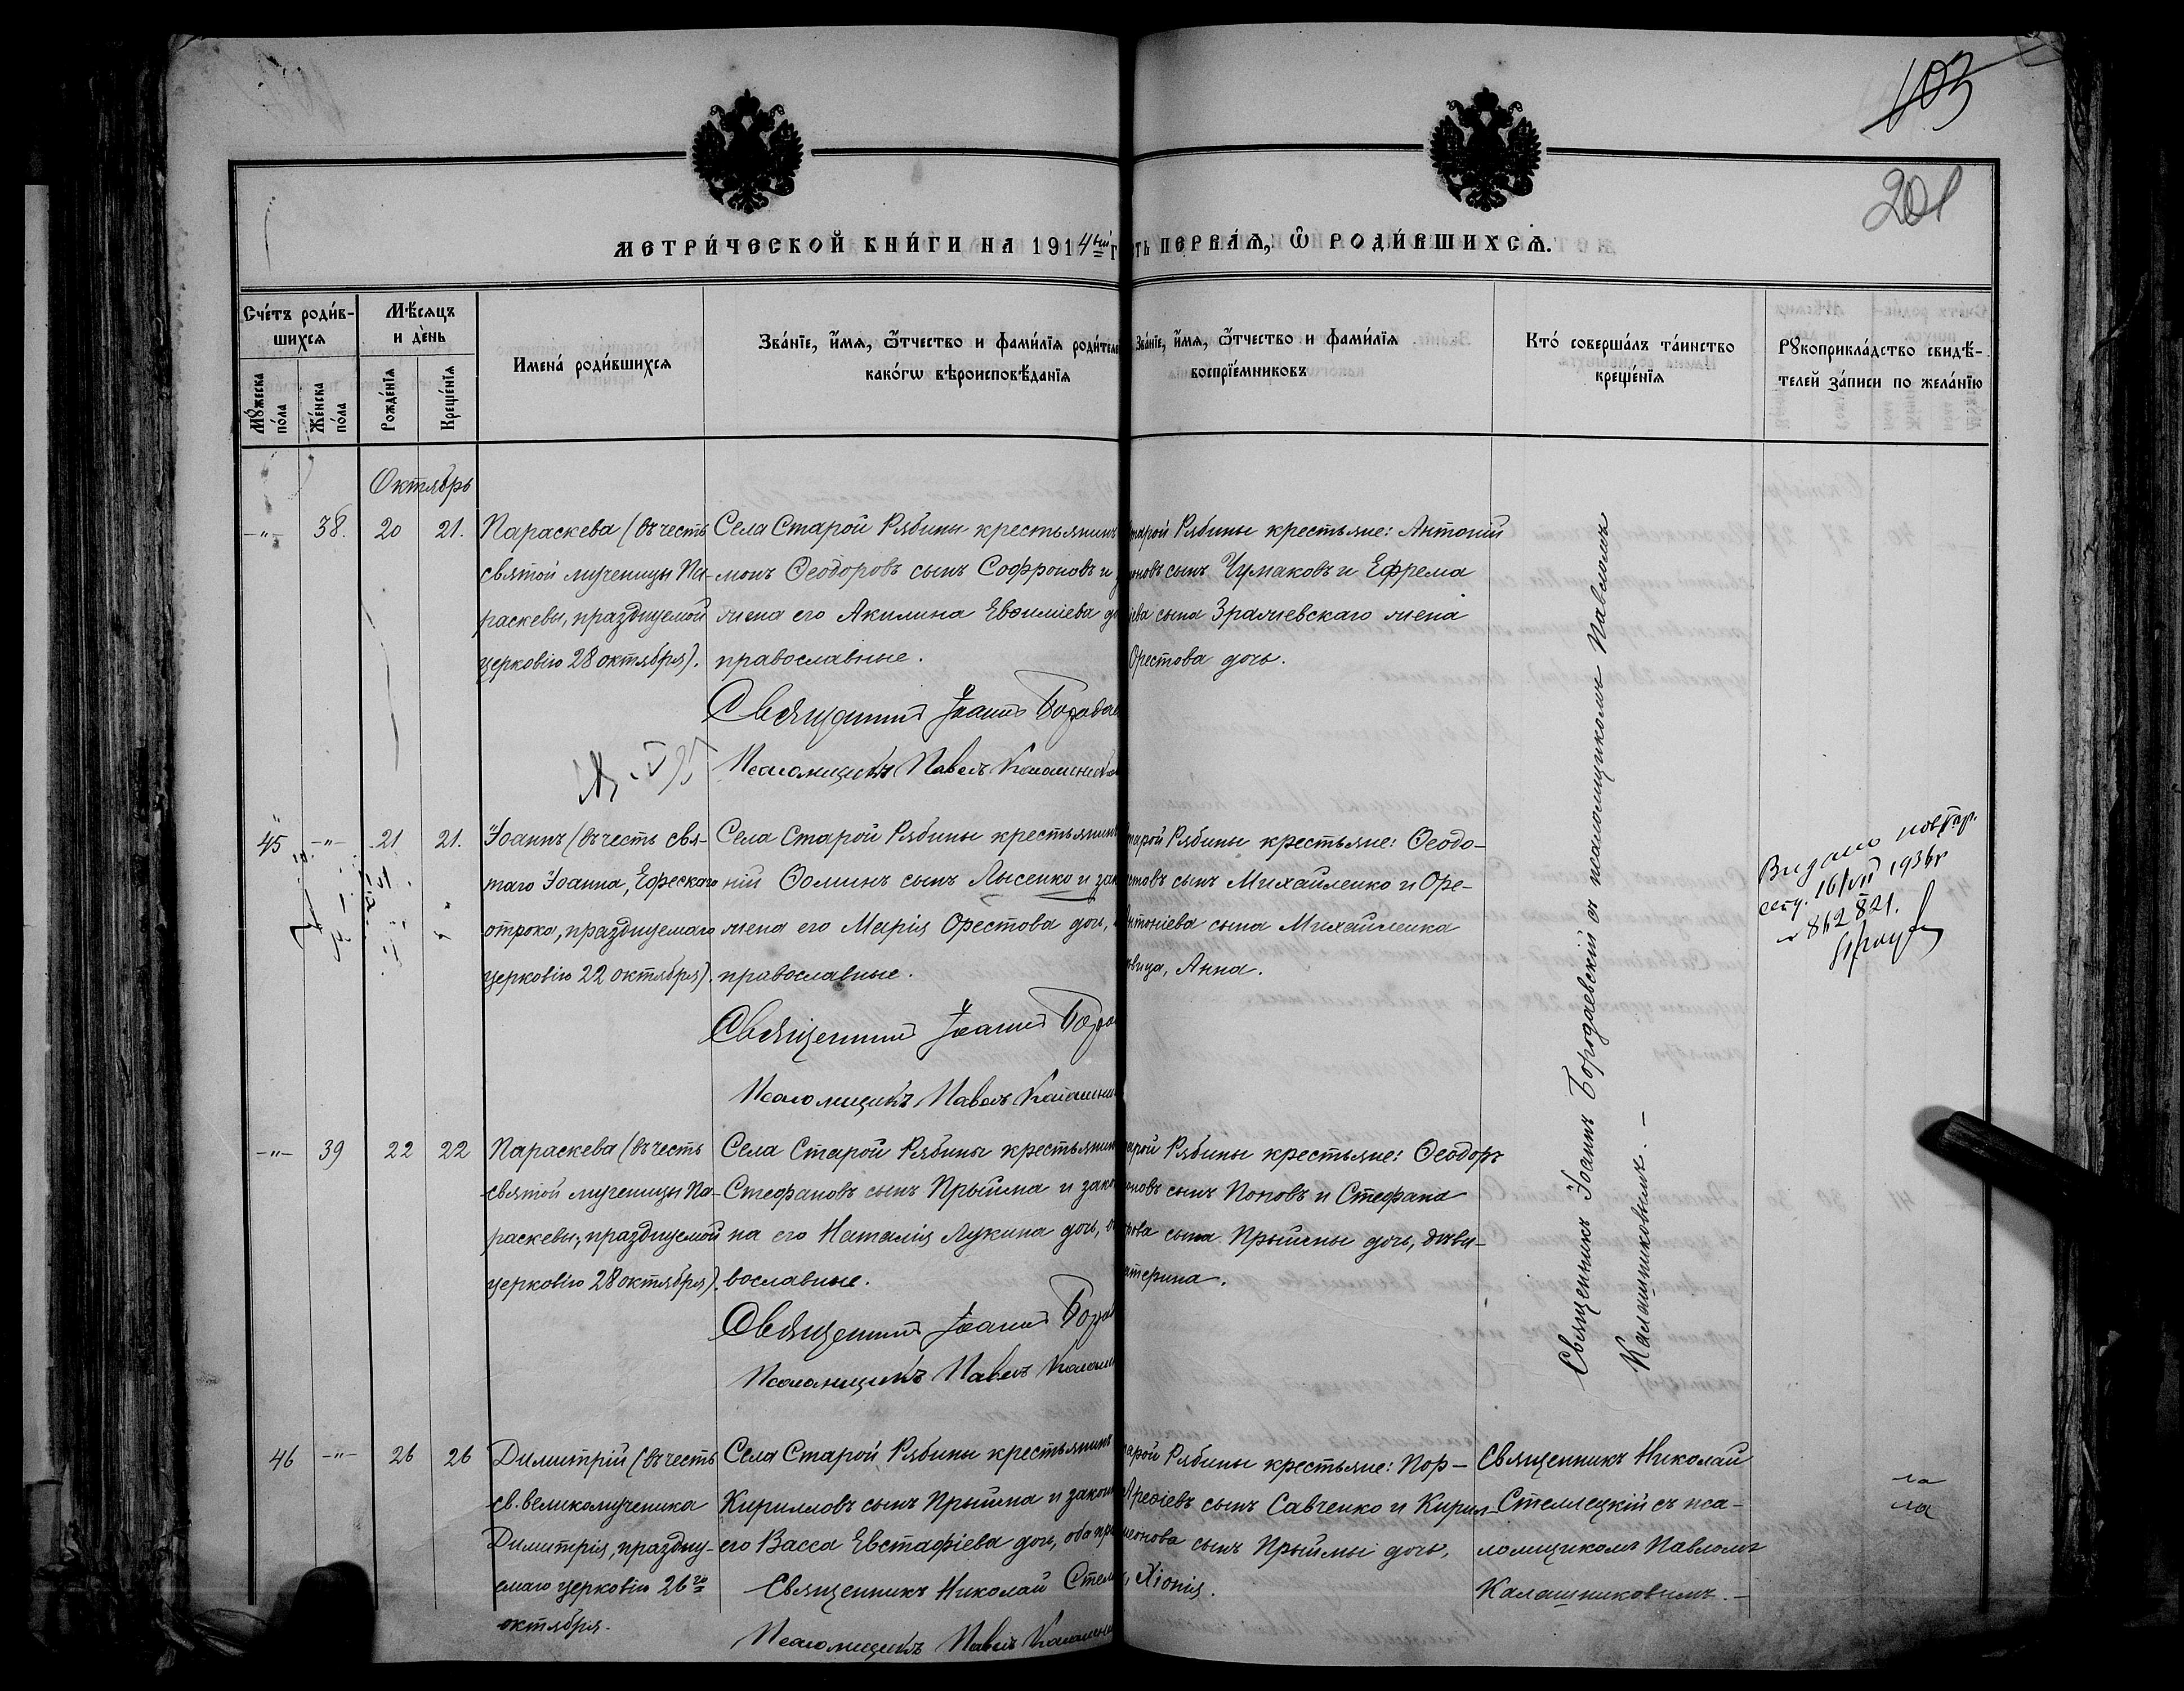 103
201
МЕТРИ́ЧЕСКОЙ КНИ́ГИ НА 1914ый Г
ТЬ ПЕРВА́Я, Ѽ РОДИ́ВШИХСЯ.
Сче́тъ роди́в-
шихся
Мꙋжеска
по́ла
Же́нска
по́ла
Мѣ́сяцъ
и де́нь
Рожде́нїя
Креще́нїя
Имена́ роди́вшихся
Зва́нїе, и҆́мя, ѻ҆́тчество и фами́лїя роди́теле
како́гѡ вѣроисповѣ́данїя
Зва́нїе, и҆́мя, ѻ҆́тчество и фами́лїя
воспрїе́мниковъ
Кто́ соверша́лъ та́инство
креще́нїя
Рꙋкоприкла́дство свидѣ́-
телей за́писи по жела́нїю
Октябрь
-"- 38. 20 21.
Параскева (въ честь
святой мученицы Па-
раскевы, празднуемой
церковію 28 октября).
Села Старой Рябины крестьянинъ
монъ Ѳеодоровъ сынъ Софроновъ и
жена его Акилина Евѳиміева до
православные.
Священникъ Іоаннъ Бородае
Псаломщикъ Павелъ Калашнико
тарой Рябины крестьяне: Антоній
оновъ сынъ Чумаковъ и Ефрема
іева сына Зражевскаго жена
Орестова дочь.
45 -"- 21 21.
Іоаннъ (въ честь свя-
таго Іоанна, Ефескаго
отрока, празднуемаго
церковію 22 октября).
Села Старой Рябины крестьянинъ
ній Ѳоминъ сынъ Лысенко и зак
жена его Марія Орестова дочь,
православные.
Священникъ Іоаннъ Боро
Псаломщикъ Павелъ Калашни
тарой Рябины крестьяне: Ѳеодо-
стовъ сынъ Михайленко и Оре-
Антоніева сына Михайленка
овица, Анна.
Видано повтор.
свід. 16/VII 1936 г
862821.
-"- 39 22 22
Параскева (въ честь
святой мученицы Па-
раскевы, празднуемой
церковію 28 октября).
Села Старой Рябины крестьянин
Стефановъ сынъ Прыйма и зако
на его Наталія Лукина дочь, о
вославные.
Священникъ Іоаннъ Боро
Псаломщикъ Павелъ Калаш
арой Рябины крестьяне: Ѳеодоръ
оновъ сынъ Поповъ и Стефана
рова сына Прыймы дочь, дѣви-
атерина.
Священникъ Іоаннъ Бородаевскій съ псаломщикомъ Павломъ
Калашниковымъ. -
46 -"- 26 26
Димитрій (въ честь
св. великомученика
Димитрія, праздну-
емаго церковію 26го
октября.
Села Старой Рябины крестьянинъ
Кирилловъ сынъ Прыйма и закон
его Васса Евстафіева дочь, оба пра
Священникъ Николай Стел
Псаломщикъ Павелъ Калашни
арой Рябины крестьяне: Пор-
Ареѳіевъ сынъ Савченко и Кирил-
меонова сынъ Прыймы дочь,
, Хіонія.
Священникъ Николай
Стеллецкій съ пса-
ломщикомъ Павломъ
Калашниковымъ. -